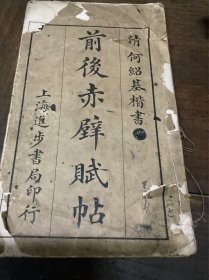 清何紹基楷書
前後赤壁賦帖
上海進步書局印行